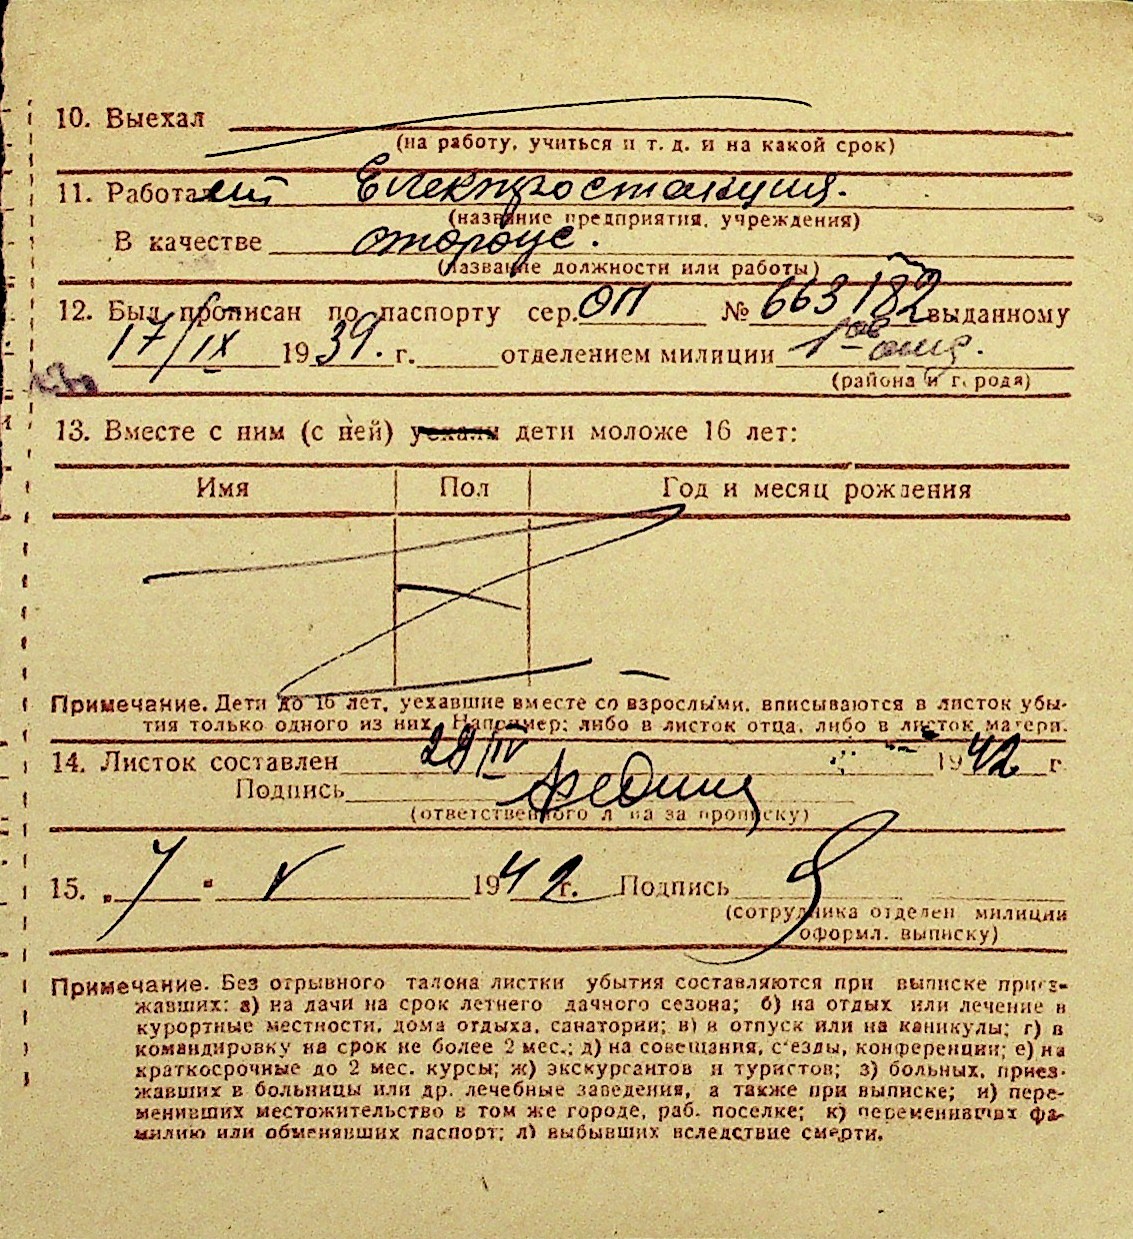 10. Выехал
(на работу, учиться и т. д. и на какой срок)
11. Работает Електростанция.
(название предприятия, учреждения)
В качестве сторож.
(название должности или работы)
12. Был прописан по паспорту сер. ОП № 663182 выданному
17/IX 1939. г. отделением милиции 1ое отд.
(района и города)
13. Вместе с ним (с ней) уехали дети моложе 16 лет:
Имя Пол Год и месяц рождения
Примечание. Дети до 16 лет, уехавшие вместе со взрослыми, вписываются в листок убы-
тия только одного из них. Например: либо в листок отца, либо в листок матери.
14. Листок составлен 29/IV 1942 г.
Подпись
(ответственного лица за прописку)
15. „7" V 1942 г. Подпись
(сотрудника отделен милиции
оформл. выписку)
Примечание. Без отрывного талона листки убытия составляются при выписке приез-
жавших: а) на дачи на срок летнего дачного сезона; б) на отдых или лечение в
курортные местности, дома отдыха, санатории; в) в отпуск или на каникулы; г) в
командировку на срок не более 2 мес.; д) на совещания, с'езды, конференции; е) на
краткосрочные до 2 мес. курсы; ж) экскурсантов и туристов; з) больных, приез-
жавших в больницы или др. лечебные заведения, а также при выписке; и) пере-
менивших местожительство в том же городе, раб. поселке; к) переменивших фа-
милию или обменявших паспорт; л) выбывших вследствие смерти.